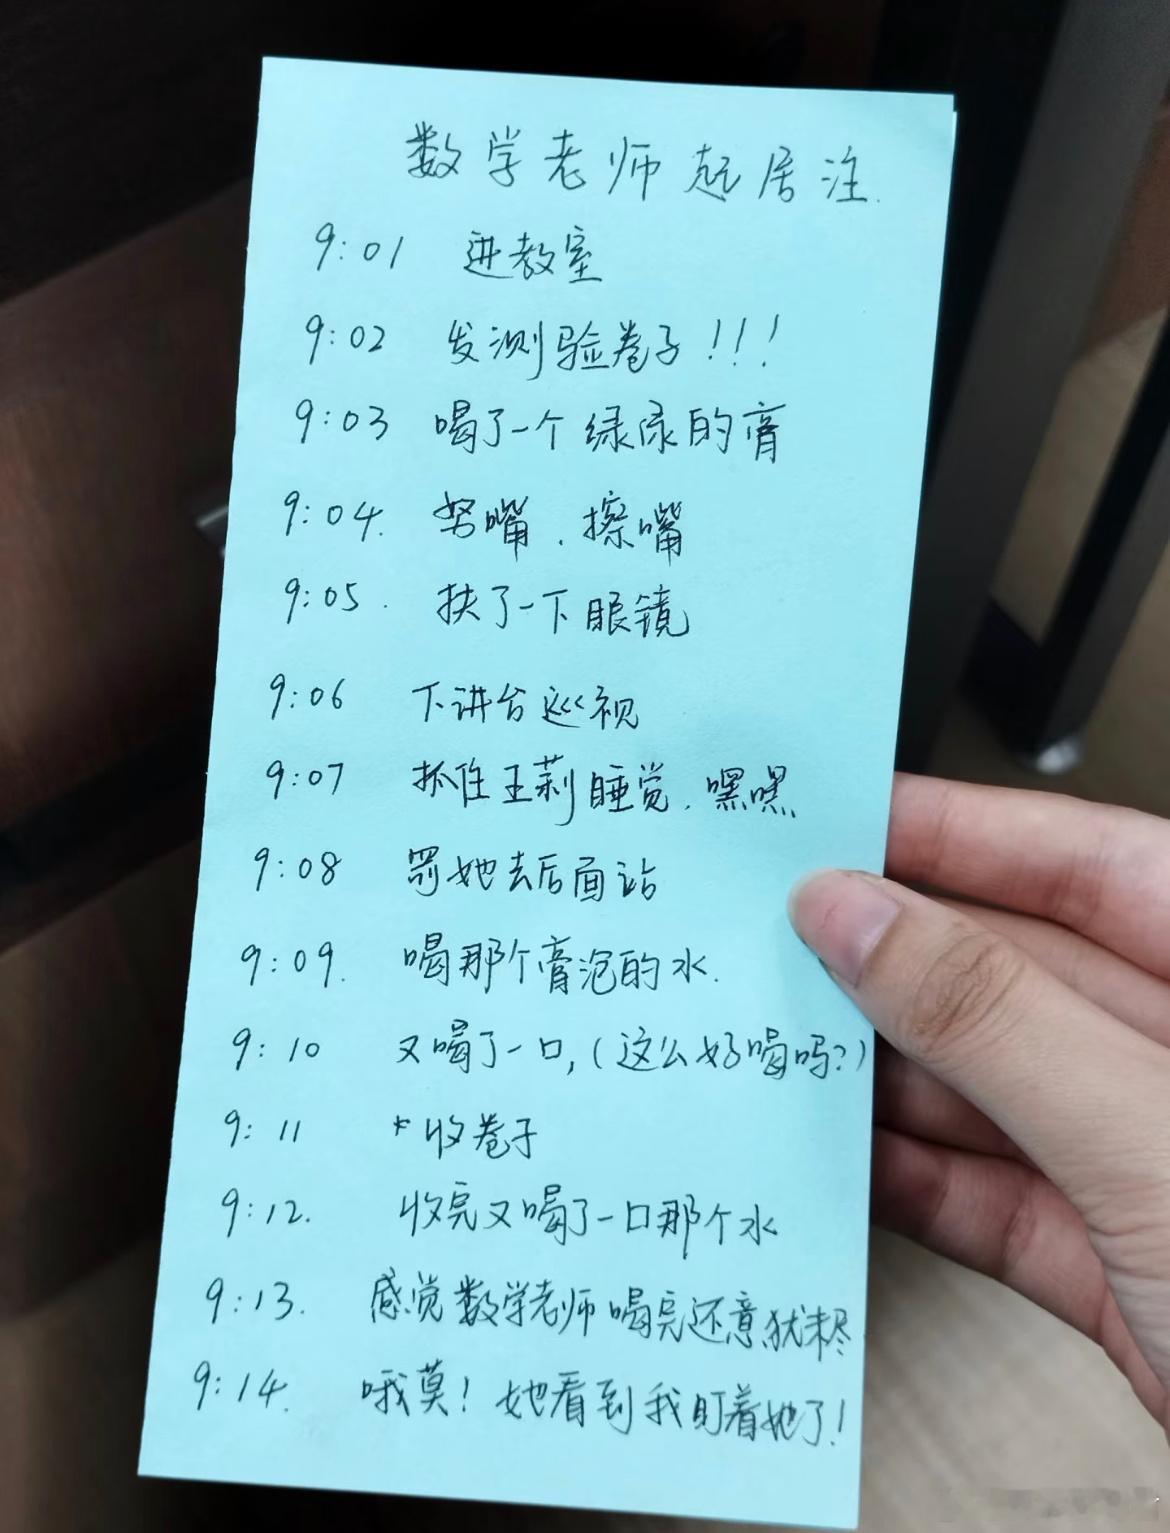 数学老师起居注.
9:01 进教室
9:02 发测验卷子!!!
9:03 喝了一个绿绿的膏
9:04. 努嘴.擦嘴
9:05. 扶了一下眼镜
9:06 下讲台巡视
9:07 抓住王莉睡觉.嘿嘿
9:08 罚她去后面站
9:09. 喝那个膏泡的水.
9:10 又喝了一口,(这么好喝吗?)
9:11 收卷子
9:12. 收完又喝了一口那个水
9:13. 感觉数学老师喝完还意犹未尽
9:14. 哦莫!她看到我盯着她了!